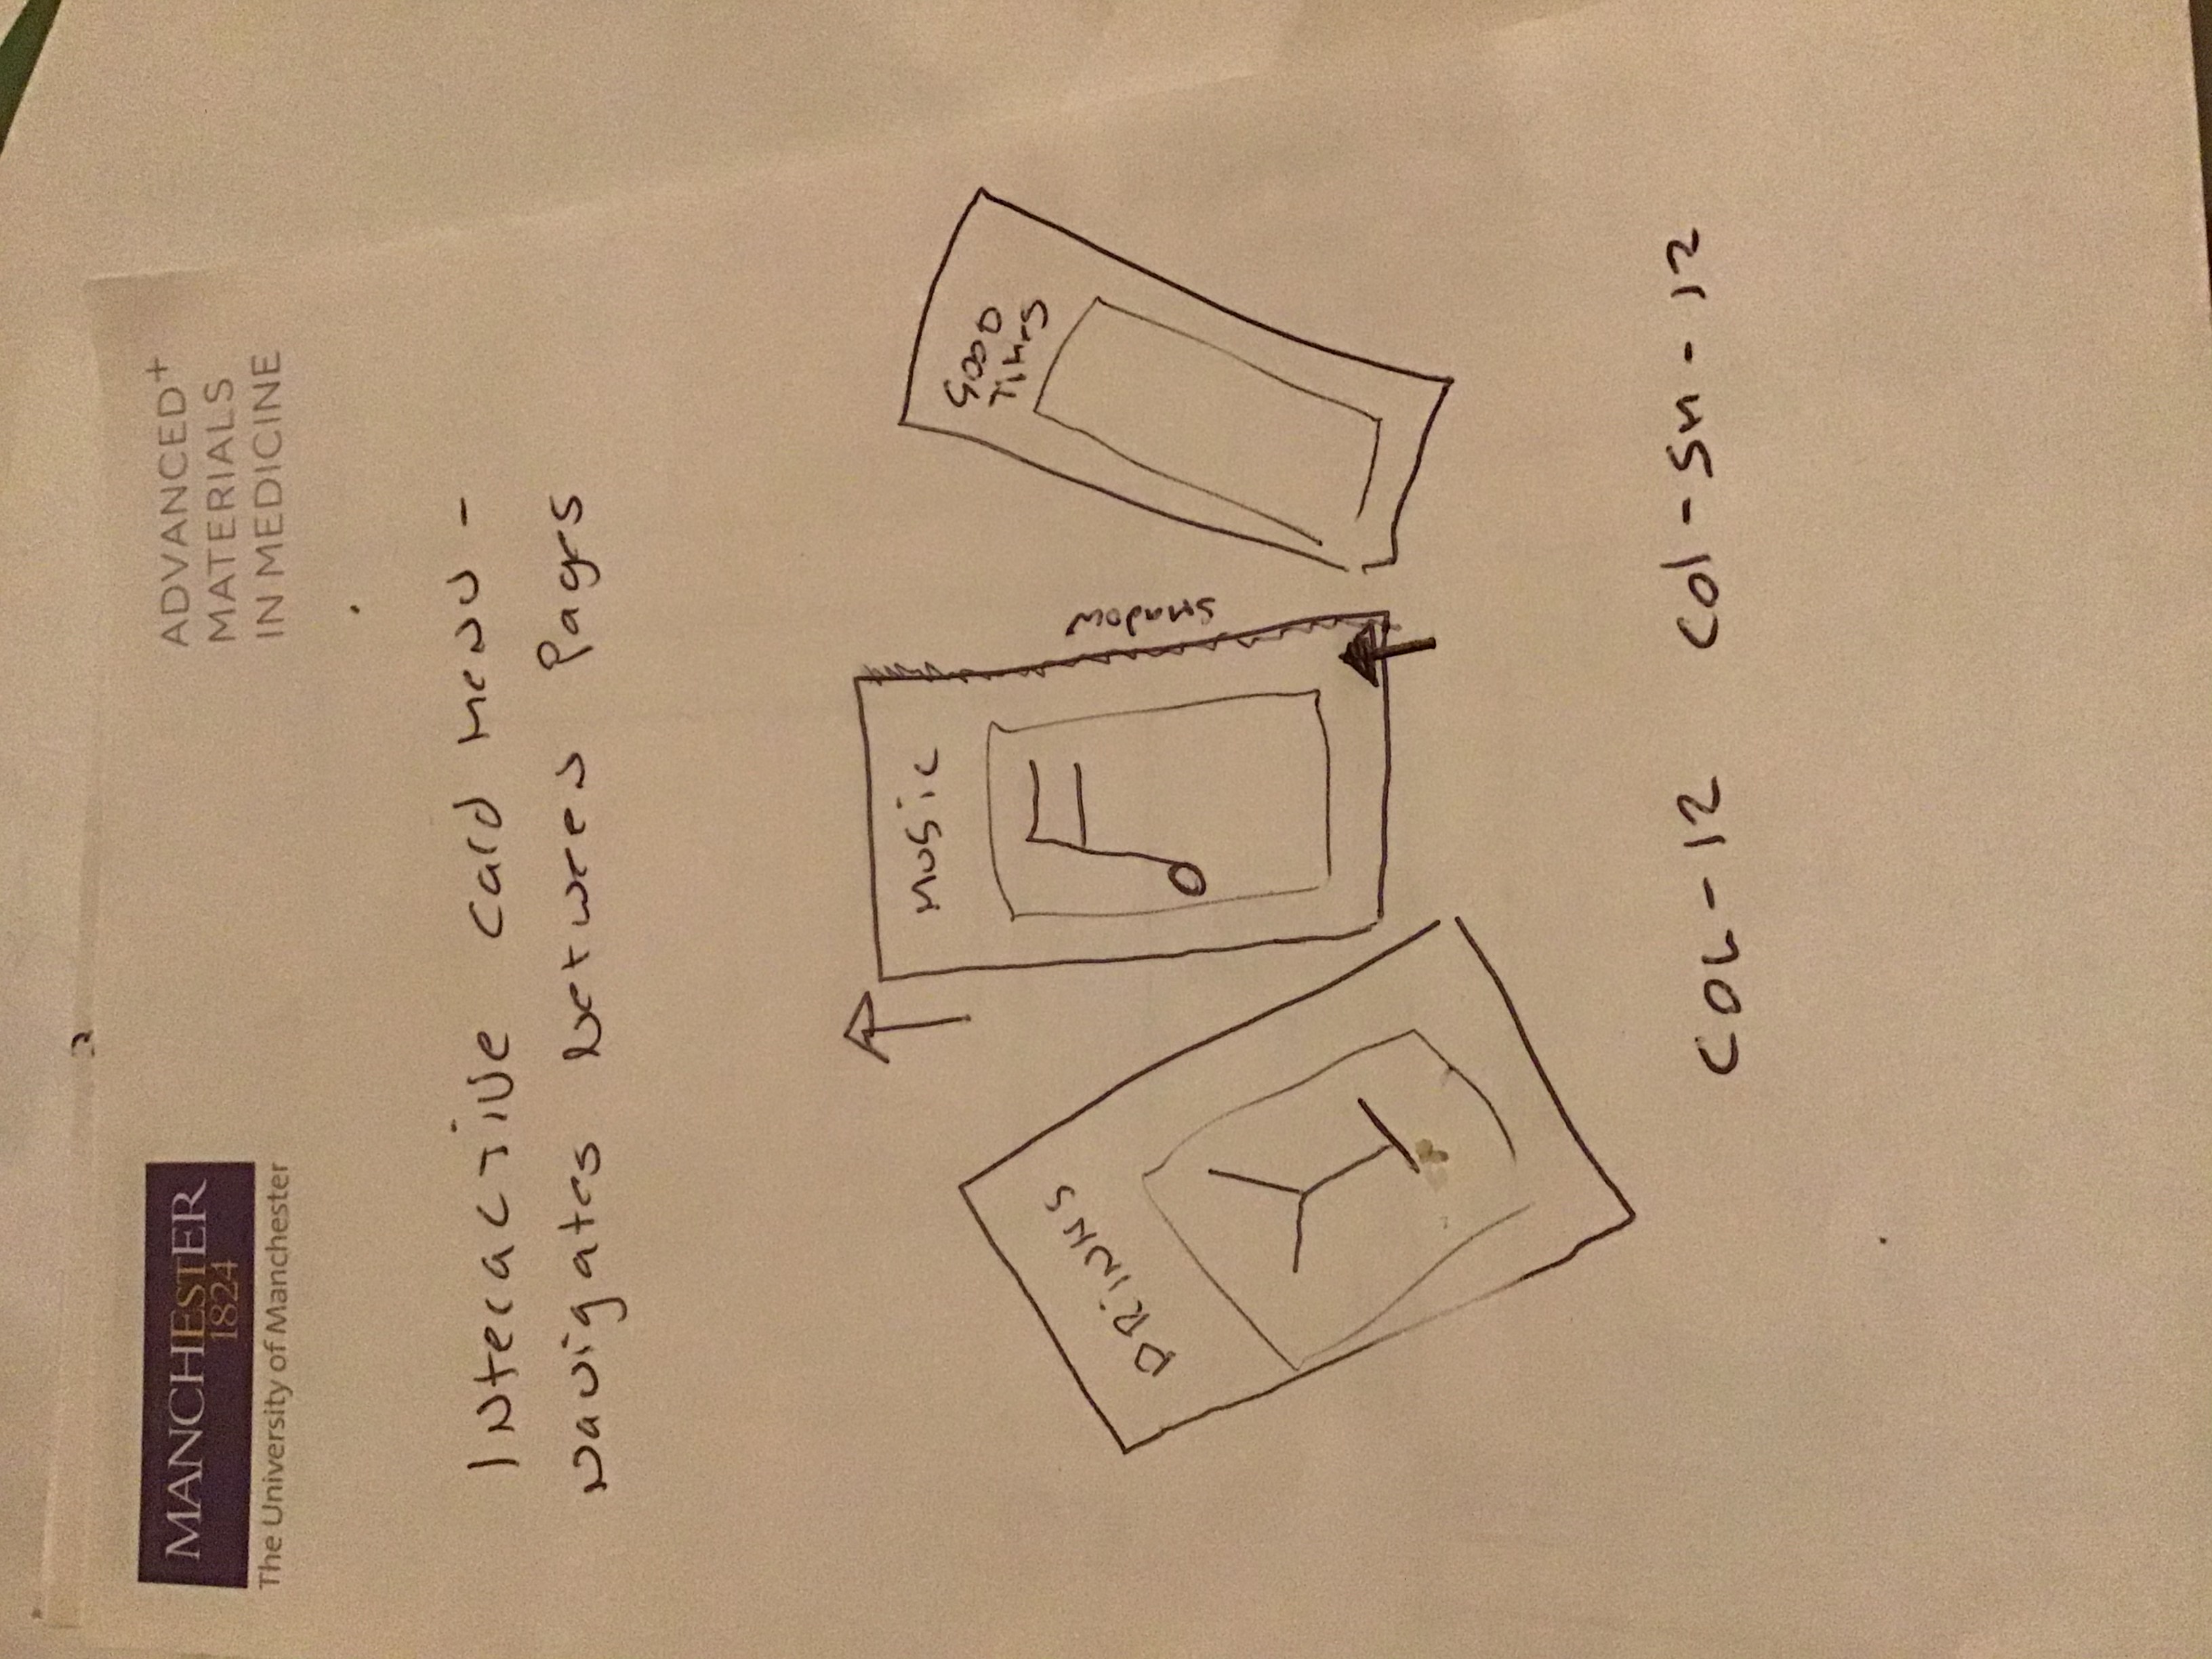 MANCHESTER
1824
The University of Manchester
ADVANCED+
MATERIALS
IN MEDICINE
INteracTIVE card menu -
navigates between Pages
DRINKS
MUSIC
SHADOW
GOOD
TIMES
COL-12 Col-Sm-12